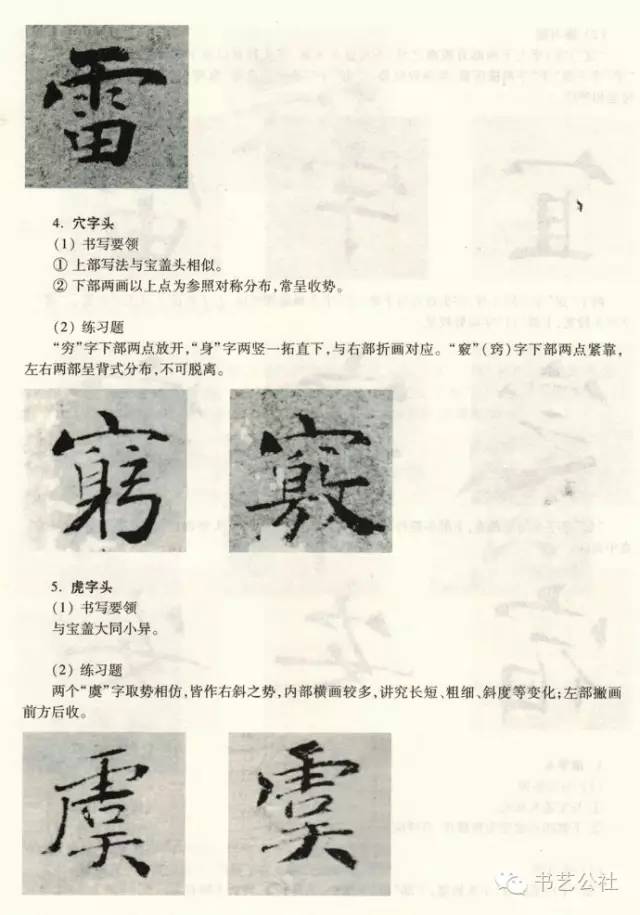 雷
4. 穴字头
(1) 书写要领
① 上部写法与宝盖头相似。
② 下部两画以上点为参照对称分布,常呈收势。
(2) 练习题
“穷”字下部两点放开,“身”字两竖一拓直下,与右部折画对应。“竅”(窍)字下部两点紧靠,
左右两部呈背式分布,不可脱离。
窮 竅
5. 虎字头
(1) 书写要领
与宝盖大同小异。
(2) 练习题
两个“虞”字取势相仿,皆作右斜之势,内部横画较多,讲究长短、粗细、斜度等变化;左部撇画
前方后收。
虞 虞
书艺公社